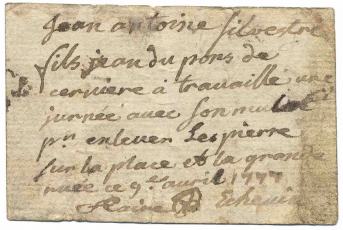 Jean antoine silvestre
fils jean du pons de
cerviere à travaillé une
jurnée avec son mulet
pr enlever Les pierre
sur la place et la grande
ruée ce 9e avril 1777
Echevin